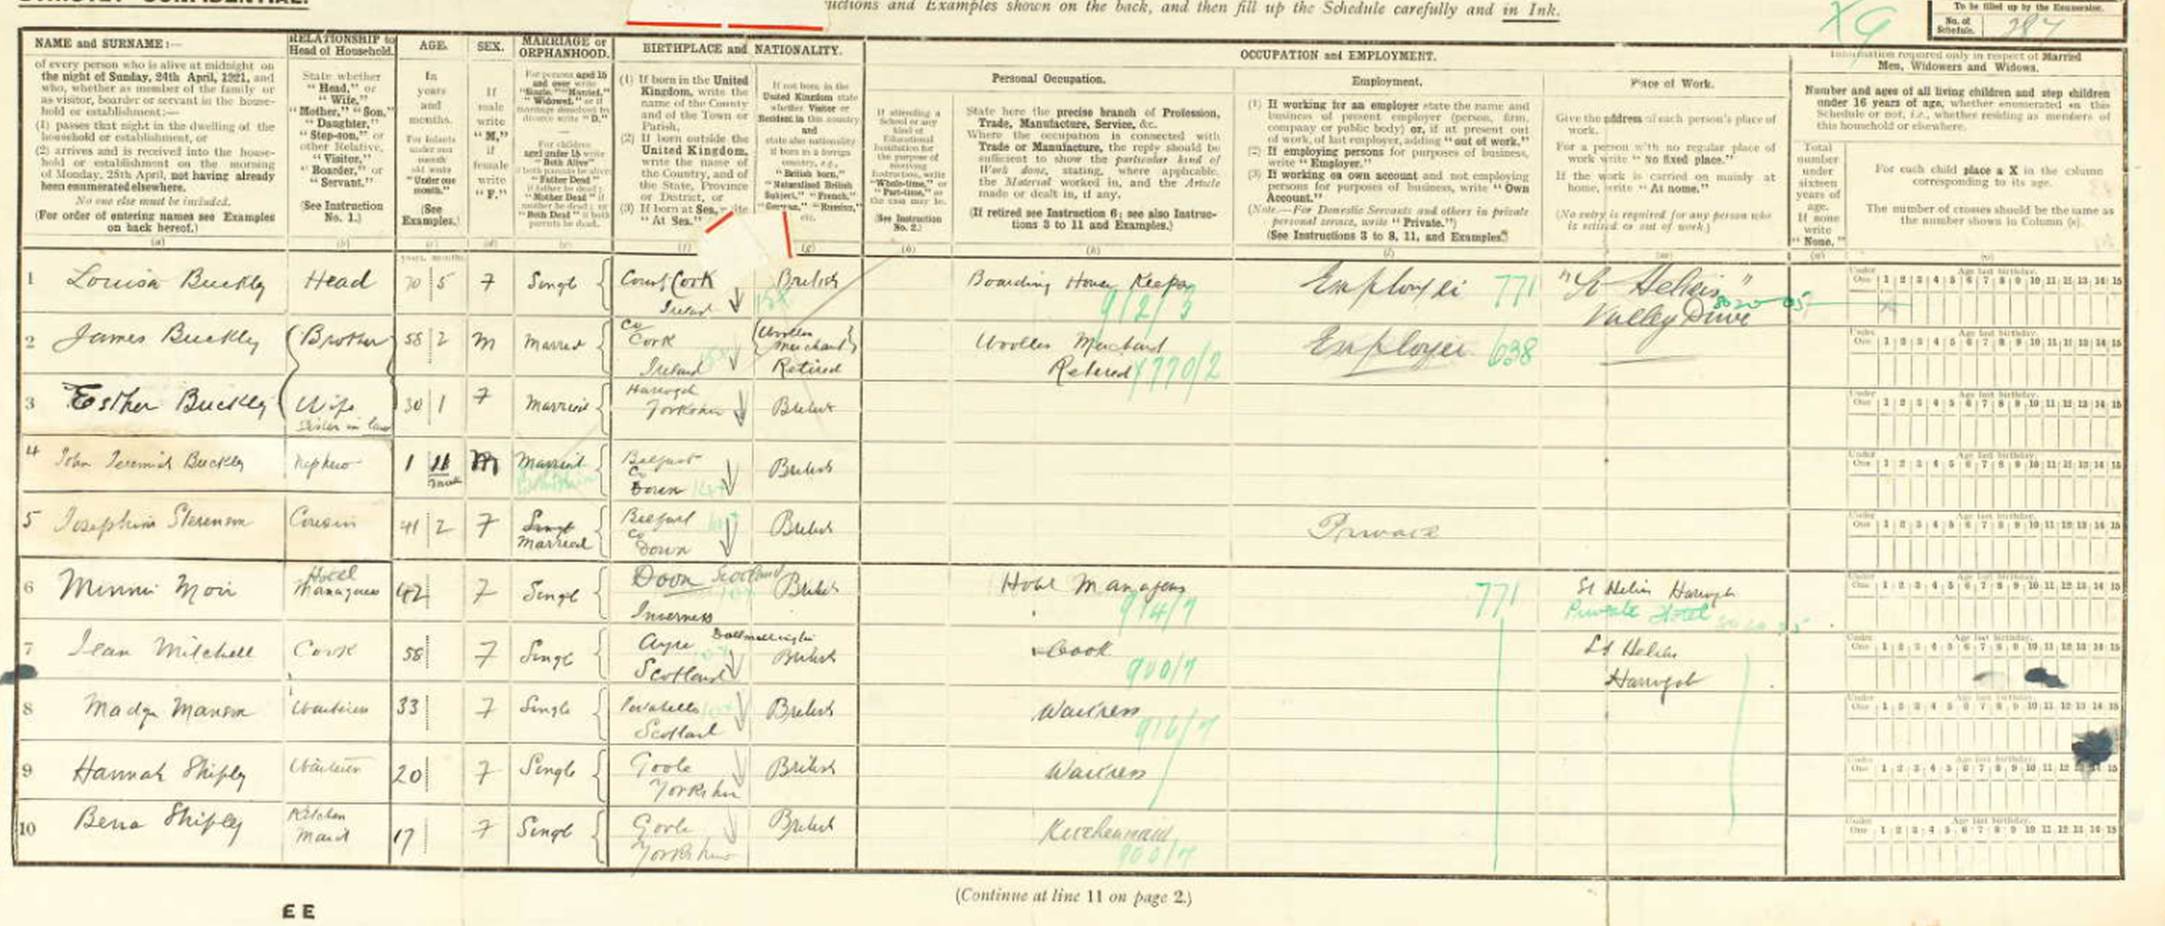 STRICTLY CONFIDENTIAL.
uctions and Examples shown on the back, and then fill up the Schedule carefully and in Ink.
To be filled up by the Enumerator.
No. of Schedule. 287
NAME and SURNAME:—
of every person who is alive at midnight on
the night of Sunday, 24th April, 1921, and
who, whether as member of the family or
as visitor, boarder or servant in the house-
hold or establishment:—
(1) passes that night in the dwelling of the
household or establishment, or
(2) arrives and is received into the house-
hold or establishment on the morning
of Monday, 25th April, not having already
been enumerated elsewhere.
No one else must be included.
(For order of entering names see Examples
on back hereof.)
(a)
RELATIONSHIP to
Head of Household.
State whether
"Head," or
"Wife,"
"Mother," "Son,"
"Daughter,"
"Step-son," or
other Relative,
"Visitor,"
"Boarder," or
"Servant."
(See Instruction
No. 1.)
(b)
AGE.
In
years
and
months.
For infants
under one
month
old write
"Under one
month."
(See
Examples.)
(c)
SEX.
If
male
write
"M."
if
female
write
"F."
(d)
MARRIAGE or
ORPHANHOOD.
For persons aged 15
and over write
"Single," "Married,"
"Widowed," or if
marriage dissolved by
divorce write "D."
For children
aged under 15 write
"Both Alive"
if both parents be alive;
"Father Dead"
if father be dead;
"Mother Dead" if
mother be dead; or
"Both Dead" if both
parents be dead.
(e)
BIRTHPLACE and NATIONALITY.
(1) If born in the United
Kingdom, write the
name of the County
and of the Town or
Parish.
(2) If born outside the
United Kingdom,
write the name of
the Country, and of
the State, Province
or District, or
(3) If born at Sea, write
"At Sea."
(f)
If not born in the
United Kingdom state
whether Visitor or
Resident in this country
and
state also nationality
if born in a foreign
country, e.g.,
"British born,"
"Naturalised British
Subject," "French,"
"German," "Russian,"
etc.
(g)
OCCUPATION and EMPLOYMENT.
Personal Occupation.
If attending a
School or any
kind of
Educational
Institution for
the purpose of
receiving
Instruction, write
"Whole-time," or
"Part-time," as
the case may be.
(See Instruction
No. 2.)
State here the precise branch of Profession,
Trade, Manufacture, Service, &c.
Where the occupation is connected with
Trade or Manufacture, the reply should be
sufficient to show the particular kind of
Work done, stating, where applicable,
the Material worked in, and the Article
made or dealt in, if any.
(If retired see Instruction 6; see also Instruc-
tions 3 to 11 and Examples.)
Employment.
(1) If working for an employer state the name and
business of present employer (person, firm,
company or public body) or, if at present out
of work, of last employer, adding "out of work."
(2) If employing persons for purposes of business,
write "Employer."
(3) If working on own account and not employing
persons for purposes of business, write "Own
Account."
(Note.—For Domestic Servants and others in private
personal service, write "Private.")
(See Instructions 3 to 8, 11, and Examples.)
Place of Work.
Give the address of each person's place of
work.
For a person with no regular place of
work write "No fixed place."
If the work is carried on mainly at
home, write "At home."
(No entry is required for any person who
is retired or out of work.)
Information required only in respect of Married
Men, Widowers and Widows.
Number and ages of all living children and step children
under 16 years of age, whether enumerated on this
Schedule or not, i.e., whether residing as members of
this household or elsewhere.
Total
number
under
sixteen
years of
age.
If none
write
"None."
For each child place a X in the column
corresponding to its age.
The number of crosses should be the same as
the number shown in Column
1 Louisa Buckley Head 70 5 F Single County Cork Ireland British Boarding House Keeper 912/3 Employer 771 "St Heliers" Valley Drive
2 James Buckley Brother 58 2 M Married Co Cork Ireland Woollen Merchant Retired Woollen Merchant Retired 770/2 Employer 638
3 Esther Buckley Wife Sister in law 30 1 F Married Harrogate Yorkshire British
4 John Jeremiah Buckley Nephew 1 11 M Married Belfast Co Down British
5 Josephine Stevenson Cousin 41 2 F Single Married Belfast Co Down British Private
6 Minnie Moir Hotel Manageress 42 F Single Scotland Inverness British Hotel Manageress 914/7 771 St Heliers Harrogate Private Hotel
7 Jean Mitchell Cook 58 F Single Ayre Scotland British Cook 900/7 St Heliers Harrogate
8 Madge Manson Waitress 33 F Single Portobello Scotland British Waitress 916/7
9 Hannah Shipley Waitress 20 F Single Goole Yorkshire British Waitress
10 Shipley Kitchen Maid 17 F Single Goole Yorkshire British Kitchenmaid 900/7
Under One 1 2 3 4 5 6 7 8 9 10 11 12 13 14 15
Age last birthday.
(Continue at line 11 on page 2.)
E E